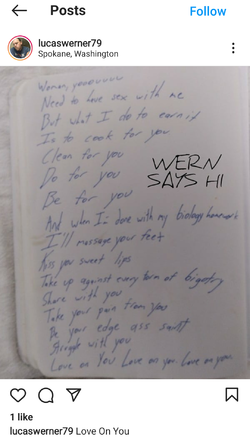 Posts
Follow
lucaswerner79
Spokane, Washington
Need to have sex with me
But what I do to earn it
Is to cook for you
Clean for you
Do for you
Be for you
WERN
SAYS HI
And when I'm done with my biology homework
I'll massage your feet
Kiss you sweet lips
Take up against every form of bigotry
Share with you
Take your pain from you
Be your edge ass
Struggle with you
Love on You Love on you Love on you
1 like
lucaswerner79 Love On You